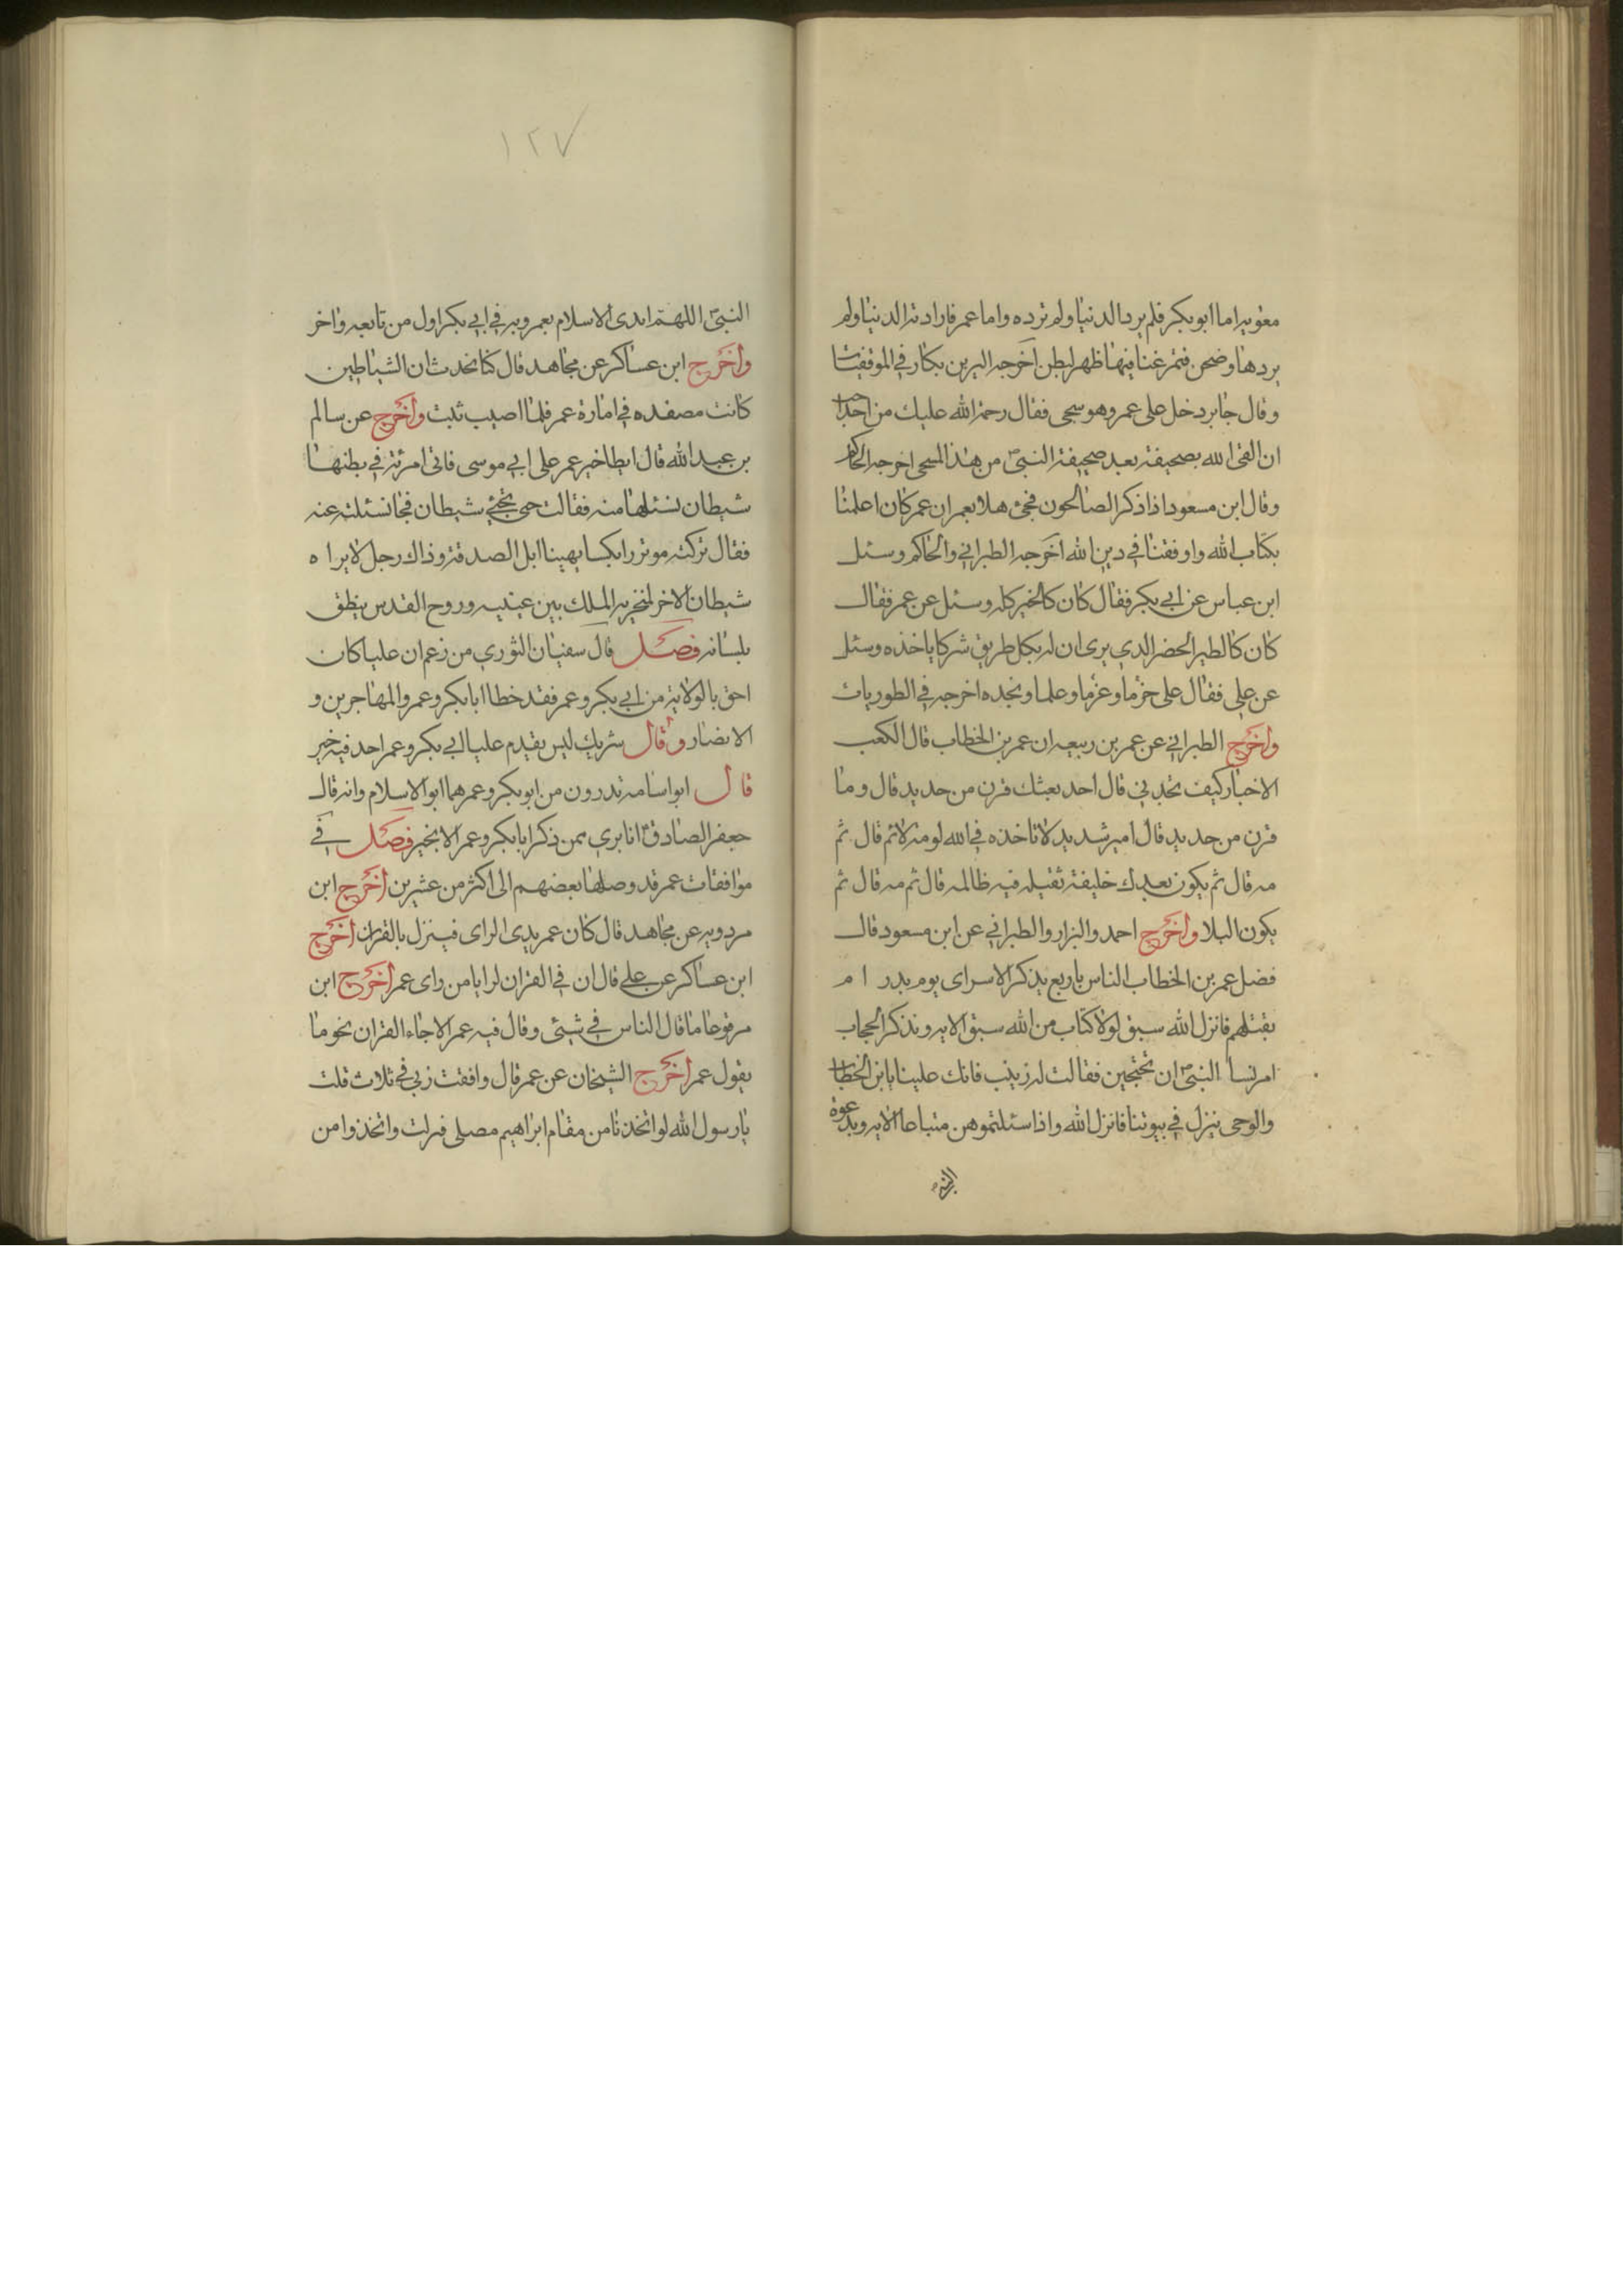 معويه اما ابو بكر فلم يرد الدنيا ولم ترده واما عمر فارادته الدنيا ولم
يردها وضحن فتمرغنا فيها ظهر لبطن اخرجه الزبير بن بكار في الموقفيات
وقال جابر دخل على عمر وهو سجى فقال رحمة الله عليك من احد احب
ان القى الله بصحيفته بعد صحيفة النبي من هذا المسجى اخرجه الحاكم
وقال ابن مسعود اذا ذكر الصالحون فحى هلا بعمر ان عمر كان اعلمنا
بكتاب الله وافقهنا في دين الله اخرجه الطبراني والحاكم وسئل
ابن عباس عن ابي بكر فقال كان كالخير كله وسئل عن عمر فقال
كان كالطير الحضر الدي يرى ان له بكل طريق شركا ياخذه وسئل
عن علي فقال على حزما وعزما وعلما ونجده اخرجه في الطوريات
واخرج الطبراني عن عمر بن ربيعه ان عمر بن الخطاب قال الكعب
الاخبار كيف تجدني قال احد بعثك قرن من حديد قال وما
قرن من حديد قال امير شديد لا تاخذه في الله لومة لائم قال ثم
مه قال ثم يكون بعدك خليفة تقتله فيه ظالمه قال ثم مه قال ثم
يكون البلا واخرج احمد والبزار والطبراني عن ابن مسعود قال
فضل عمر بن الخطاب الناس باربع بذكر الاسراى يوم بدر ام
بقتلهم فانزل الله سبق لولا كتاب من الله سبق الايه وبذكر الحجاب
امر نسا النبي ان تحتجبن فقالت له زينب فانك علينا يا بن الخطاب
والوحى ينزل في بيوتنا فانزل الله واذا سئلتموهن متاعا الايه وبدعوة
النبي
١٢٧
النبي اللهم ايدى الاسلام بعمر وبه في ابي بكر اول من تابعه واخر
واخرج ابن عساكر عن مجاهد قال كنا نحدث ان الشياطين
كانت مصفده في امارة عمر فلما اصيب ثبت واخرج عن سالم
بن عبد الله قال ابطا خبر عمر على ابي موسى فاتى امرئة في بطنها
شيطان نسئلها منه فقالت حى يجئ شيطان فجا نسئلته عنه
فقال تركته موتزرا بكسا يهينا ابل الصدقة وذاك رجل لا يراه
شيطان الا خر لمنخريه الملك بين عينيه وروح القدس ينطق
بلسانه فصل قال سفيان الثوري من زعم ان عليا كان
احق بالولاية من ابي بكر وعمر فقد خطا ابا بكر وعمر والمهاجرين و
الانصار وقال شريك ليس يقدم عليا ابي بكر وعمر احد فيه خير
قال ابو اسامه تدرون من ابو بكر وعمر هما ابو الاسلام وانه قال
جعفر الصادق انا بري ممن ذكر ابا بكر وعمر الا بخير فصل في
موافقات عمر قد وصلها بعضهم الى اكثر من عشرين اخرج ابن
مردويه عن مجاهد قال كان عمر يدى الراى فينزل بالقران اخرج
ابن عساكر عن على قال ان في القران لرايا من راى عمر اخرج ابن
مرفوعا ما قال الناس في شيئى وقال فيه عمر الا جاء القران نحو ما
يقول عمر اخرج الشيخان عن عمر قال وافقت ربي في ثلاث قلت
يا رسول الله لو اتخذنا من مقام ابراهيم مصلى فنزلت واتخذوا من